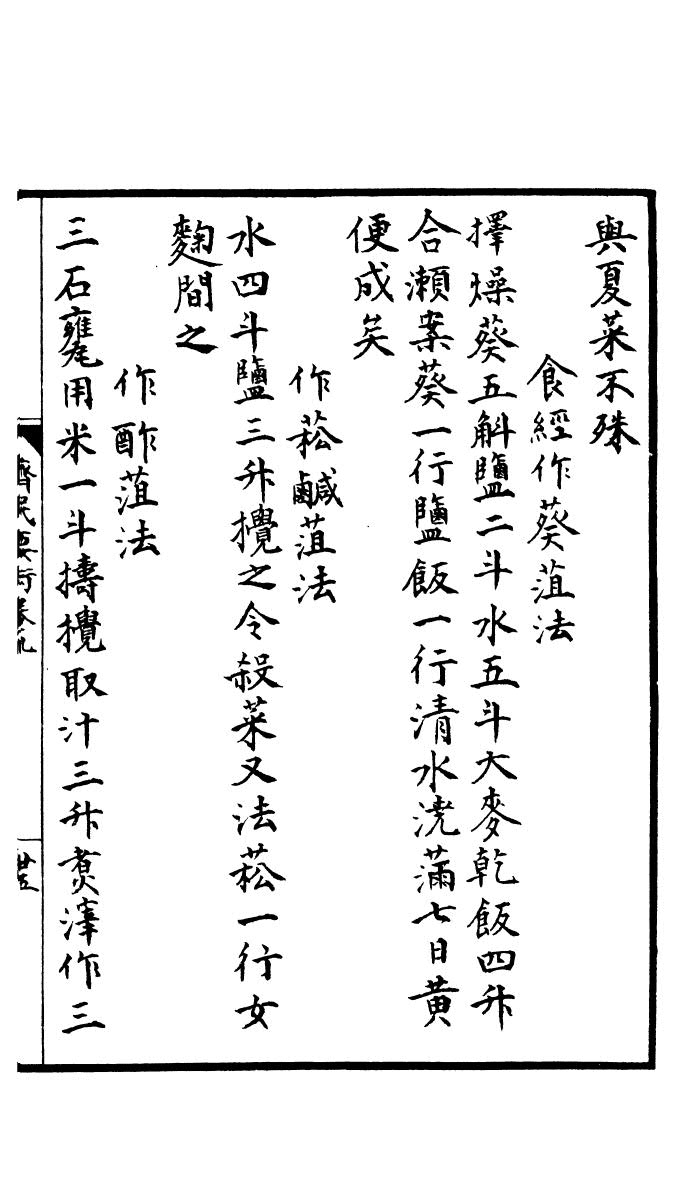 與夏菜不殊
食經作葵菹法
擇燥葵五斛鹽二斗水五斗大麥乾飯四升
合瀨案葵一行鹽飯一行清水澆滿七日黃
便成矣
作菘鹹菹法
水四斗鹽三升攪之令殺菜又法菘一行女
麴間之
作酢菹法
三石甕用米一斗擣攪取汁三升煮滓作三
齊民要術卷九
卅五